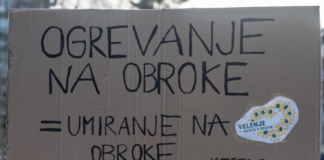 OGREVANJE
NA OBROKE
= UMIRANJE NA
OBROKE
VELENJE